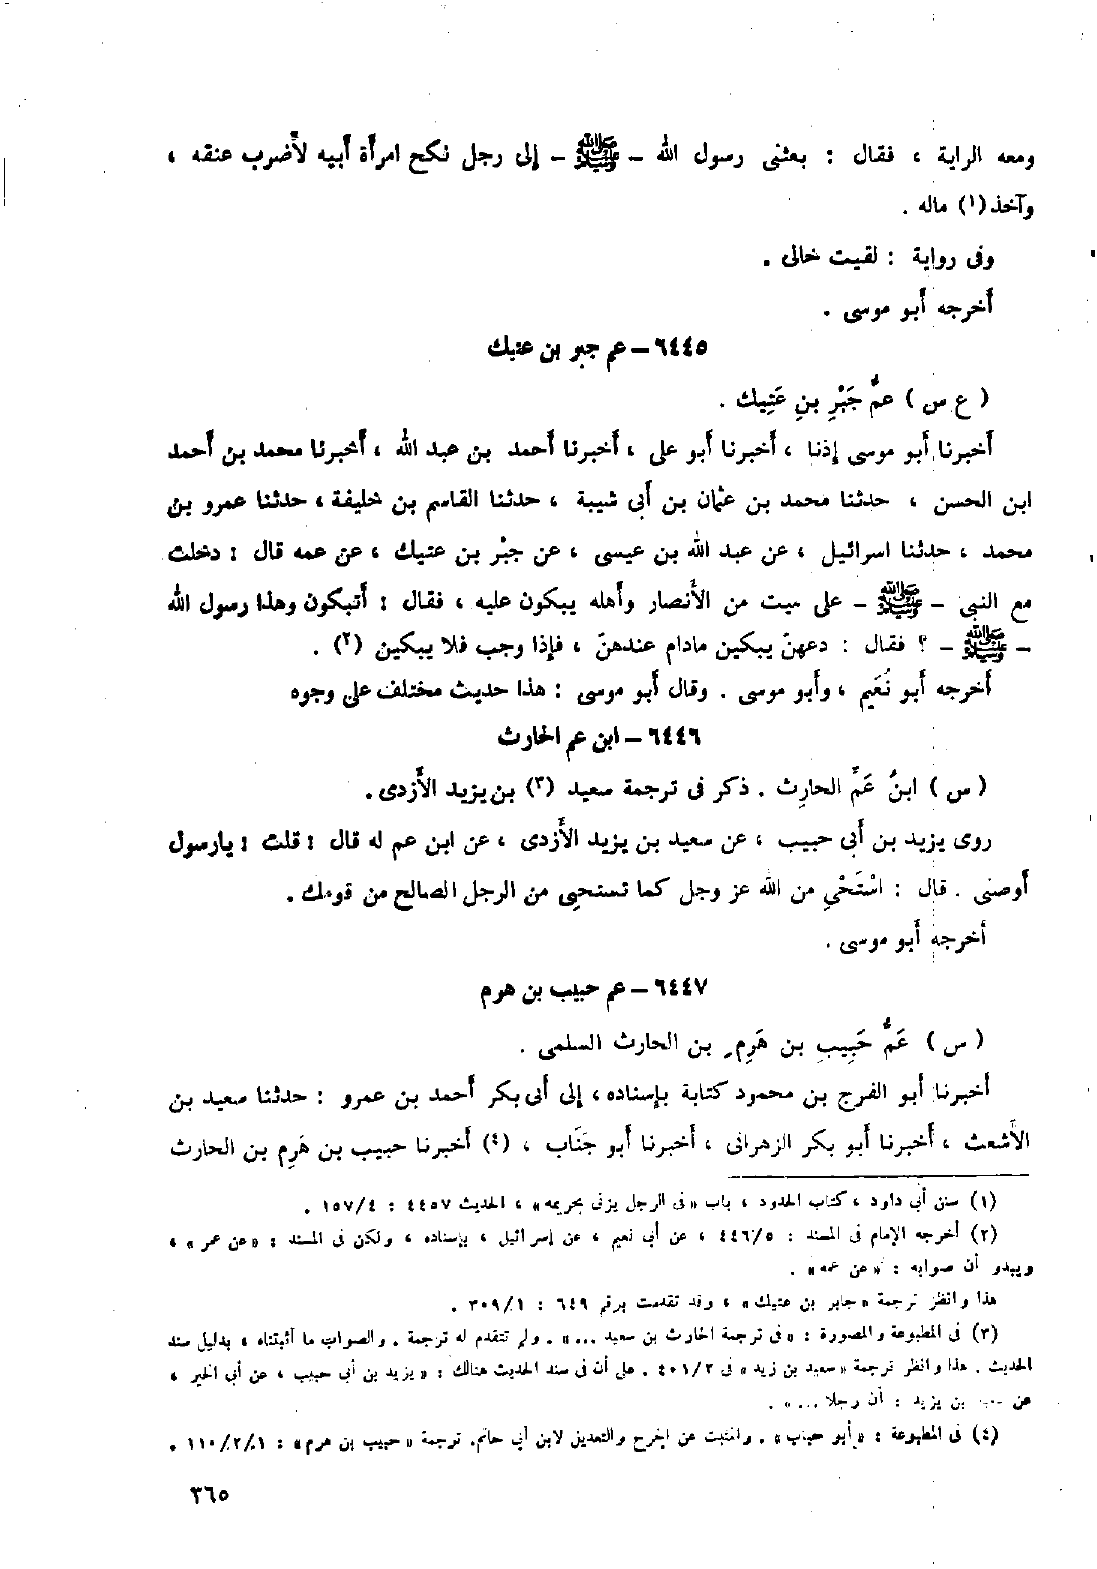 ومعه الراية ، فقال : بعثنى رسول الله – ﷺ – إلى رجل نكح امرأة أبيه لأضرب عنقه ،
وآخذ (١) ماله .
وفى رواية : لقيت خالى .
أخرجه أبو موسى .
٦٤٤٥ – عم جبر بن عتيك
( ع س ) عمُّ جَبْرِ بنِ عَتِيك .
أخبرنا أبو موسى إذنا ، أخبرنا أبو على ، أخبرنا أحمد بن عبد الله ، أخبرنا محمد بن أحمد
ابن الحسن ، حدثنا محمد بن عثمان بن أبى شيبة ، حدثنا القاسم بن خليفة ، حدثنا عمرو بن
محمد ، حدثنا اسرائيل ، عن عبد الله بن عيسى ، عن جبْر بن عتيك ، عن عمه قال : دخلت
مع النبى – ﷺ – على ميت من الأنصار وأهله يبكون عليه ، فقال : أتبكون وهذا رسول الله
– ﷺ – ؟ فقال : دعهنّ يبكين مادام عندهنّ ، فإذا وجب فلا يبكين (٢) .
أخرجه أبو نُعَيم ، وأبو موسى . وقال أبو موسى : هذا حديث مختلف على وجوه
٦٤٤٦ – ابن عم الحارث
( س ) ابنُ عَمِّ الحارِث . ذكر فى ترجمة سعيد (٣) بن يزيد الأزدى .
روى يزيد بن أبى حبيب ، عن سعيد بن يزيد الأزدى ، عن ابن عم له قال : قلت : يارسول
أوصنى . قال : اسْتَحْىِ من الله عز وجل كما تستحيى من الرجل الصالح من قومك .
أخرجه أبو موسى .
٦٤٤٧ – عم حبيب بن هرم
( س ) عَمُّ حَبِيبِ بن هَرِم بن الحارث السلمى .
أخبرنا أبو الفرج بن محمود كتابة بإسناده ، إلى أبى بكر أحمد بن عمرو : حدثنا سعيد بن
الأشعث ، أخبرنا أبو بكر الزهرانى ، أخبرنا أبو جَنَاب ، (٤) أخبرنا حبيب بن هَرِم بن الحارث
(١) سنن أبى داود ، كتاب الحدود ، باب « فى الرجل يزنى بحريمه » ، الحديث ٤٤٥٧ : ١٥٧/٤ .
(٢) أخرجه الإمام فى المسند : ٤٤٦/٥ ، عن أبى نعيم ، عن إسرائيل ، بإسناده ، ولكن فى المسند : « عن عمر » ،
ويبدو أن صوابه : « عن عمه » .
هذا وانظر ترجمة « جابر بن عتيك » ، وقد تقدمت برقم ٦٤٩ : ٣٠٩/١ .
(٣) فى المطبوعة والمصورة : « فى ترجمة الحارث بن سعيد ... » . ولم تتقدم له ترجمة . والصواب ما أثبتناه ، بدليل سند
الحديث . هذا وانظر ترجمة « سعيد بن زيد » فى ٤٠١/٢ . على أن فى سند الحديث هنالك : « يزيد بن أبى حبيب ، عن أبى الخير ،
عن بن يزيد : أن رجلا ... » .
(٤) فى المطبوعة : « أبو حباب » . والمثبت عن الجرح والتعديل لابن أبى حاتم، ترجمة « حبيب بن هرم » : ١١٠/٢/١ .
٣٦٥